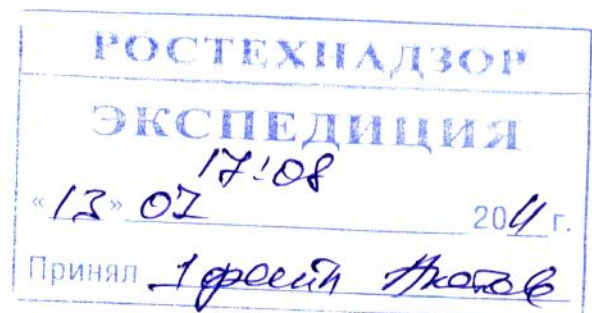 РОСТЕХНАДЗОР
ЭКСПЕДИЦИЯ
17:08
«13» 07 2011 г.
Принял 1